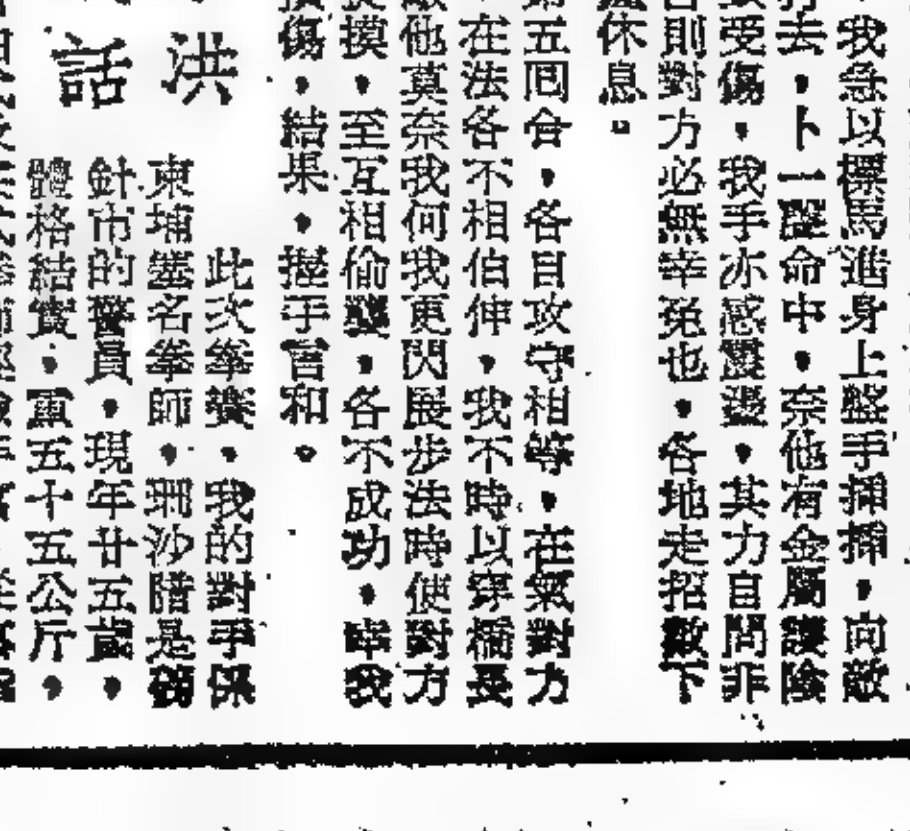 ，我急以標馬進身上盤手揮揮，向敵
去，卜一聲命中，奈他有金屬護陰
受傷，我手亦感震盪，其力自問非
則對方必無幸免也，各地走招數下
休息。
五回合，各自攻守相等，在氣對方
在法各不相伯伸，我不時以穿橋長
他莫奈我何我更閃展步法時使對方
摸，至互相偷襲，各不成功，幸我
傷，結果，握手言和。
洪
話
此次拳賽，我的對手係
柬埔寨名拳師，珊沙階是
針市的警員，現年廿五歲，
體格結實，重五十五公斤，